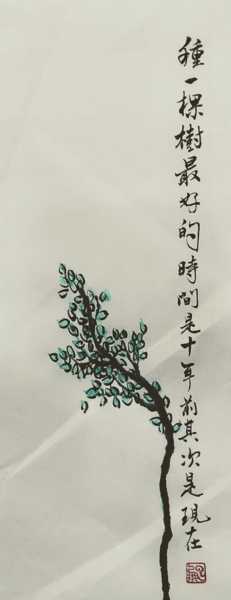 種一棵樹最好的時間是十年前其次是現在